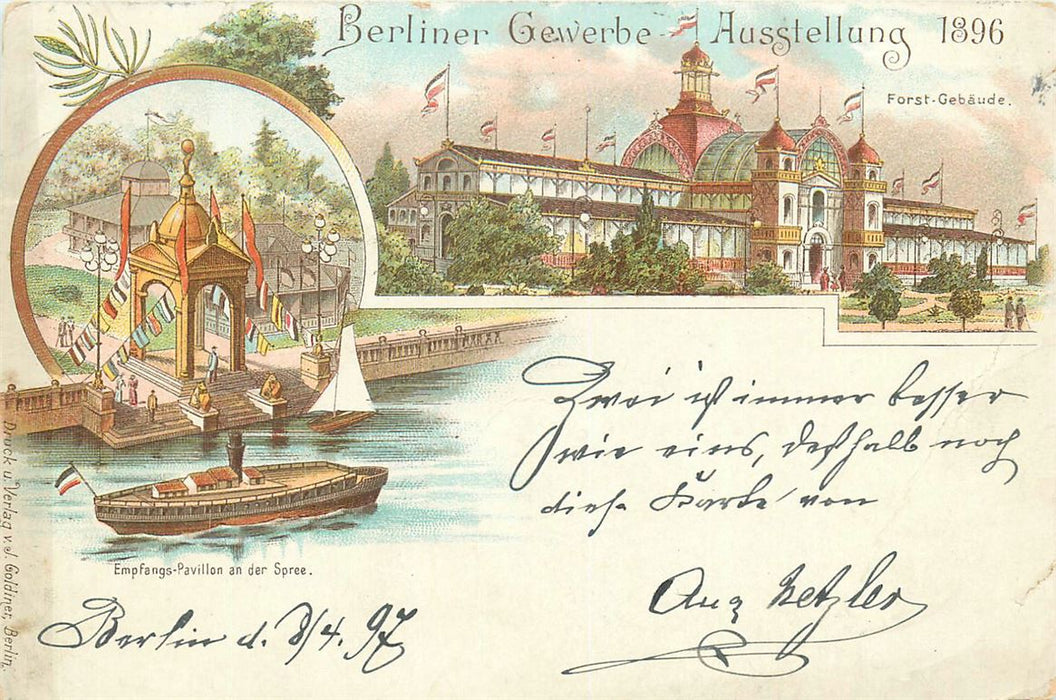 Berliner Gewerbe-Ausstellung 1896
Forst-Gebäude.
Zwei ist immer besser
wie eins, deshalb noch
diese Karte von
Aug Hetzler
Empfangs-Pavillon an der Spree.
Berlin d. 8/4. 97
Druck u. Verlag v. J. Goldiner, Berlin.